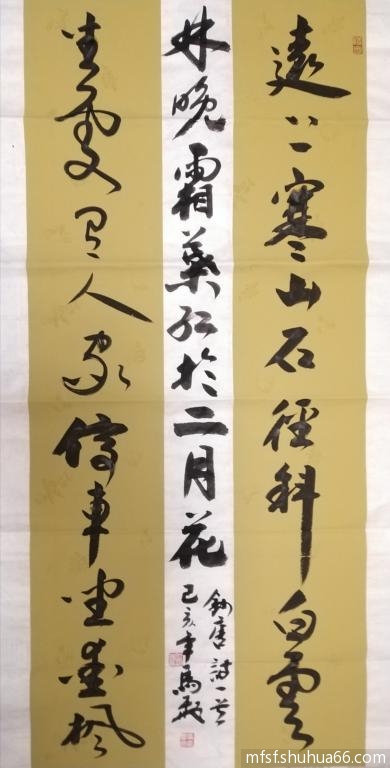 遠上寒山石徑斜白雲
生處有人家停車坐愛楓
林晚霜葉紅於二月花
唐詩一首
己亥年馬
mfsf.shuhua66.com